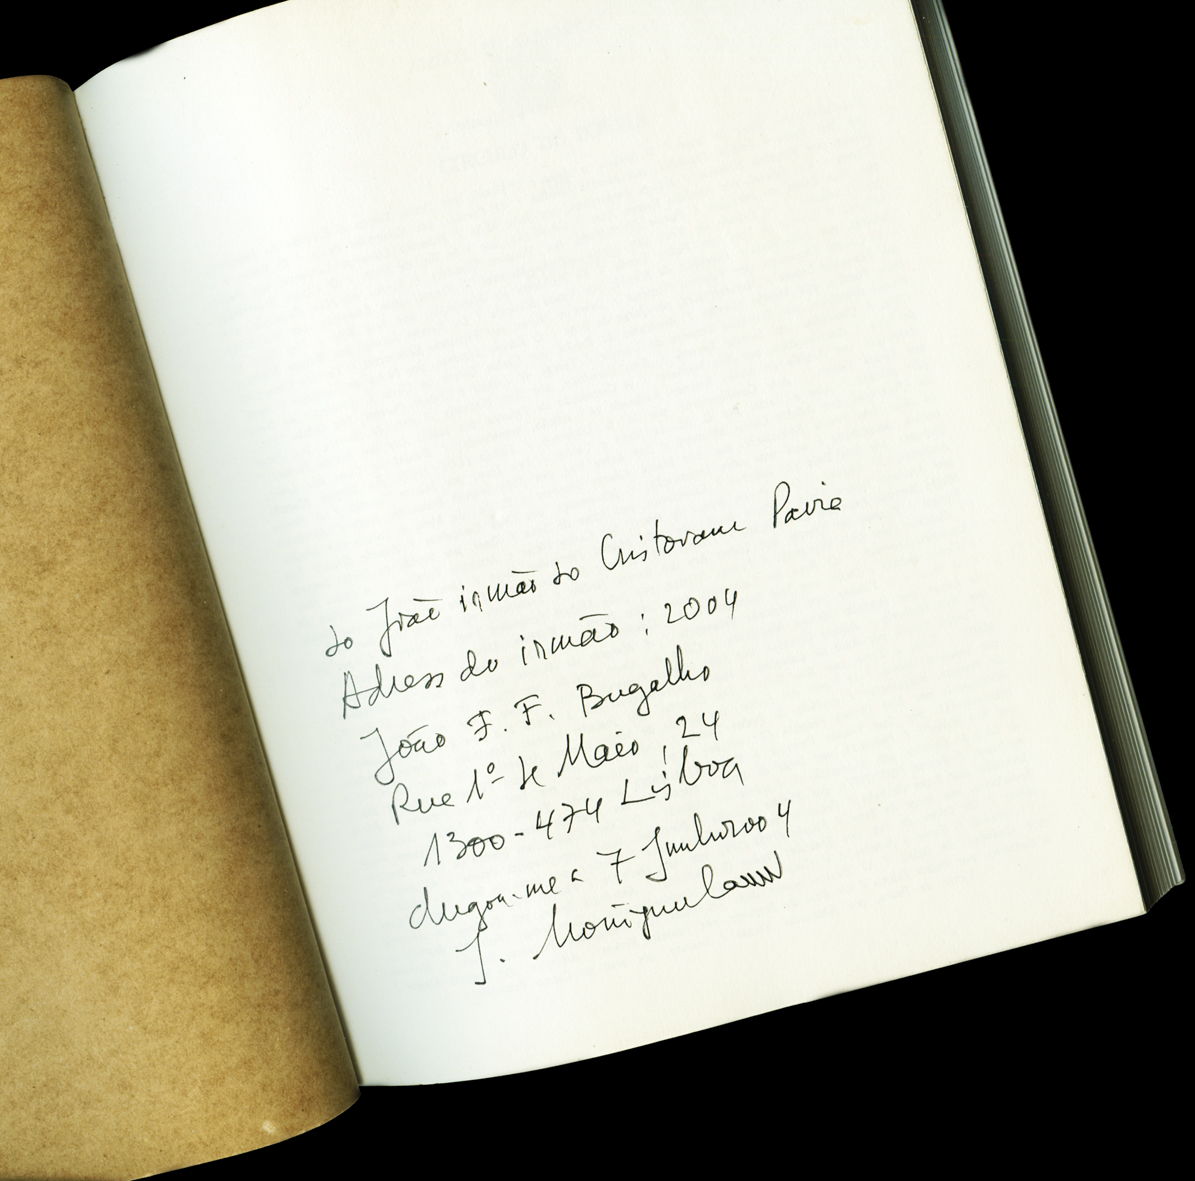 do João irmão do Cristovam Pavia
Adress do irmão : 2004
João F. F. Bugalho
Rue 1º de Maio, 24
1300-474 Lisboa
chegou-me a 7 Junho 2004
J.